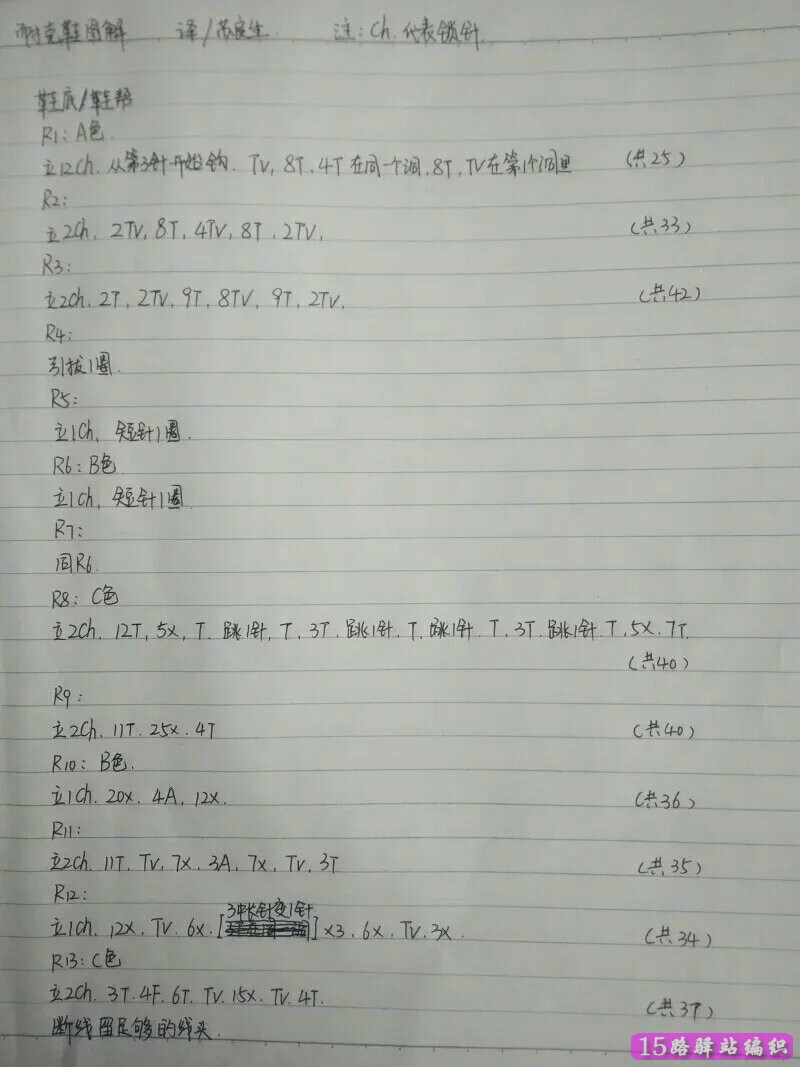 耐克鞋图解 译/苏良生 注: Ch.代表锁针
鞋底/鞋帮
R1: A色.
立12Ch. 从第3针开始钩. TV, 8T. 4T在同一个洞, 8T, TV在第1个洞里 (共25)
R2:
立2Ch. 2TV, 8T, 4TV, 8T. 2TV. (共33)
R3:
立2Ch. 2T, 2TV, 9T, 8TV, 9T, 2TV. (共42)
R4:
引拔1圈.
R5:
立1Ch, 短针1圈.
R6: B色
立1Ch, 短针1圈
R7:
同R6.
R8: C色
立2Ch. 12T, 5X, T. 跳1针, T. 3T. 跳1针. T, 跳1针. T. 3T. 跳1针. T, 5X. 7T.
(共40)
R9:
立2Ch. 11T. 25X. 4T (共40)
R10: B色.
立1Ch. 20X. 4A, 12X. (共36)
R11:
立2Ch. 11T, TV, 7X, 3A, 7X, TV, 3T (共35)
R12:
3中长针变1针
立1Ch. 12X, TV. 6X. [ ]×3. 6X. TV. 3X. (共34)
R13: C色
立2Ch. 3T. 4F. 6T. TV. 15X. TV. 4T. (共37)
断线留足够的线头.
15路驿站编织